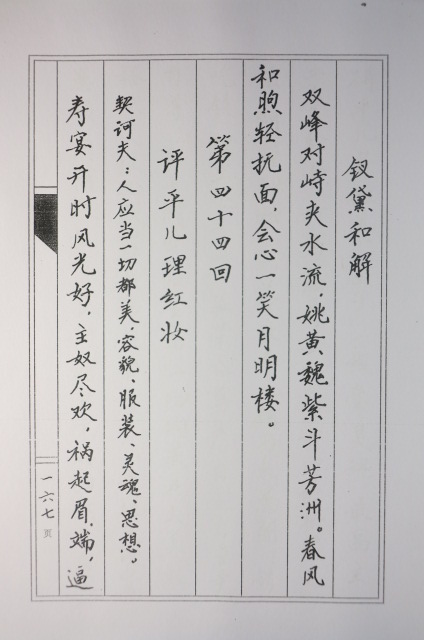 钗黛和解
双峰对峙夹水流，姚黄魏紫斗芳洲。春风
和煦轻抚面，会心一笑月明楼。
第四十四回
评平儿理红妆
契诃夫：人应当一切都美，容貌、服装、灵魂、思想。
寿宴开时风光好，主奴尽欢，祸起眉端，逼
一六七页